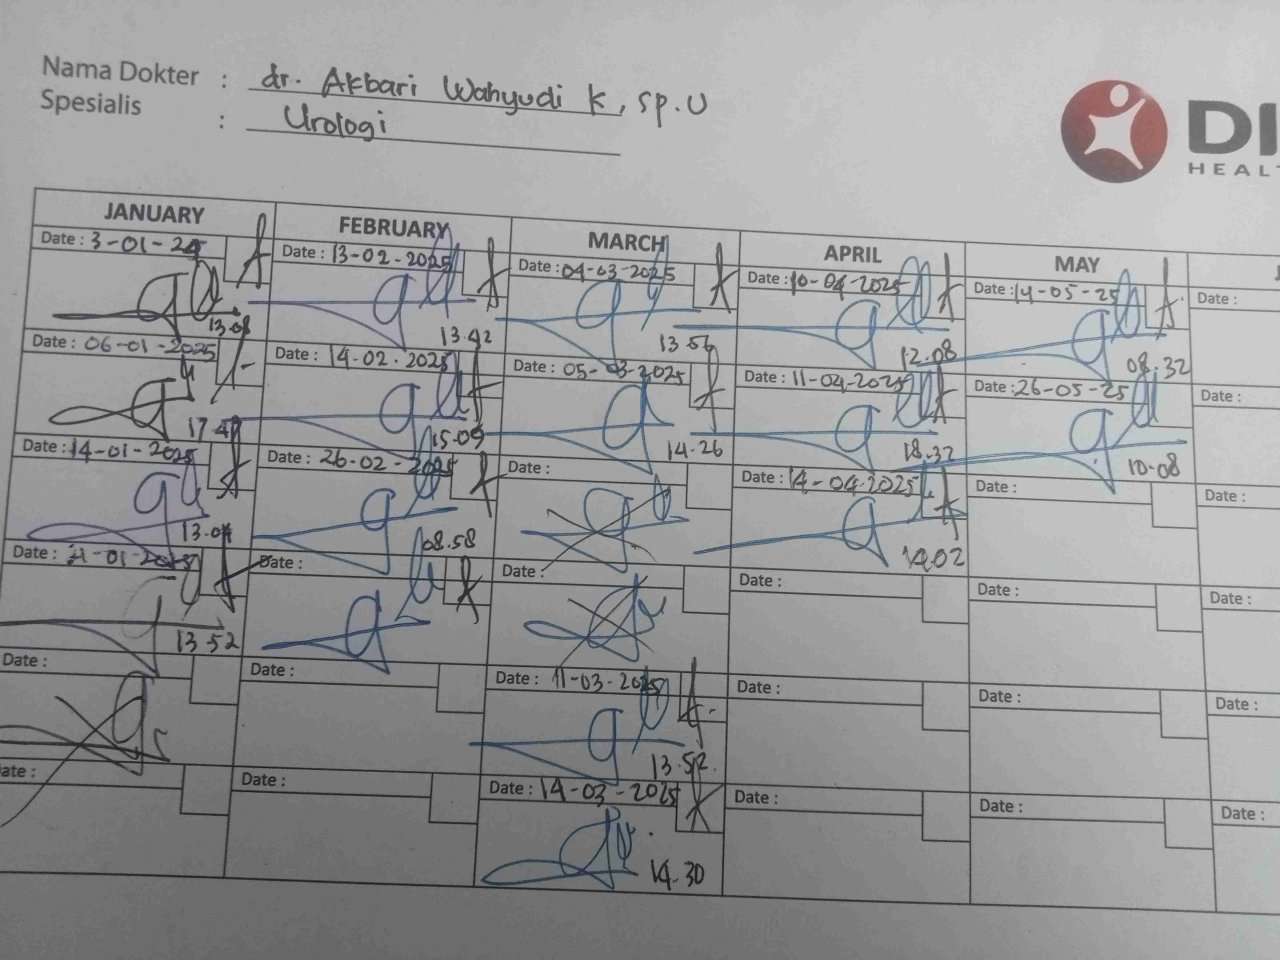 Nama Dokter : dr. Akbari Wahyudi K, sp.U
Spesialis : Urologi
DI
HEALT
JANUARY FEBRUARY MARCH APRIL MAY
Date : 3-01-25 Date : 13-02-2025 Date : 04-03-2025 Date : 10-04-2025 Date : 14-05-25 Date :
13.08 13.42 13.56 12.08 08.32
Date : 06-01-2025 Date : 14-02-2025 Date : 05-03-2025 Date : 11-04-2025 Date : 26-05-25 Date :
17.47 15.09 14.26 18.32 10.08
Date : 14-01-2025 Date : 26-02-2025 Date : Date : 14-04-2025 Date : Date :
13.04 08.58 14.02
Date : 21-01-2025 Date : Date : Date : Date : Date :
13.52
Date : Date : Date : 11-03-2025 Date : Date : Date :
13.52
ate : Date : Date : 14-03-2025 Date : Date : Date :
14.30